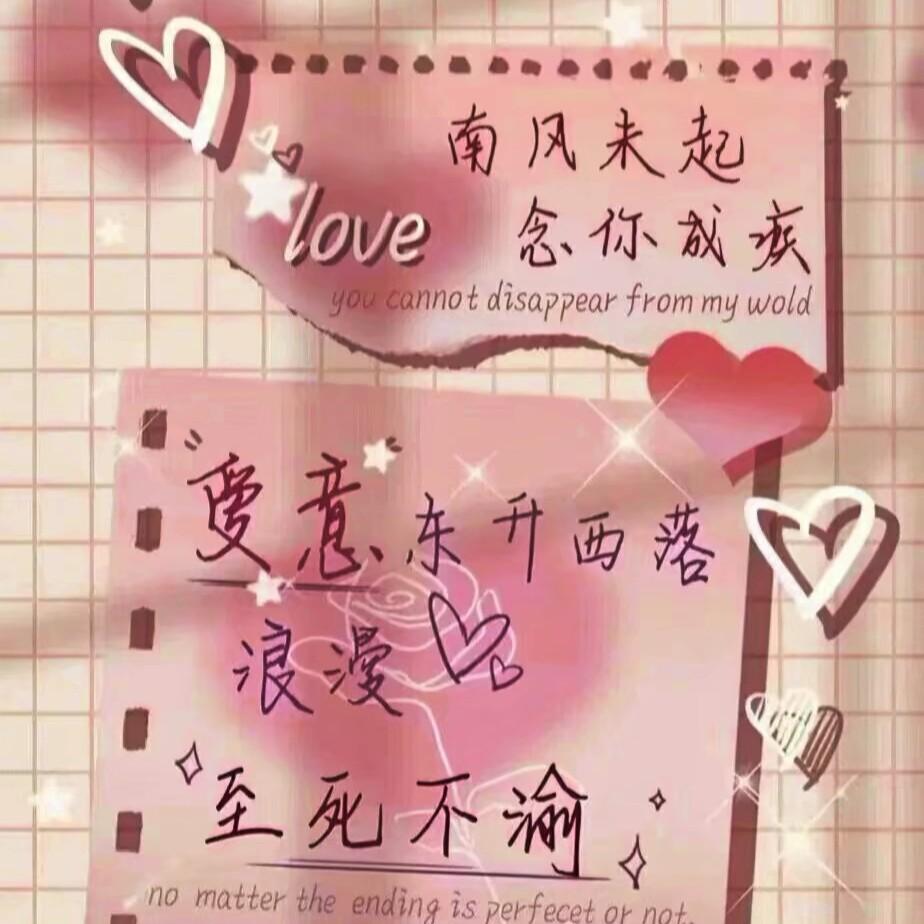 南风未起
love
念你成疾
you cannot disappear from my wold
爱意东升西落
浪漫
至死不渝
no matter the ending is perfecet or not.